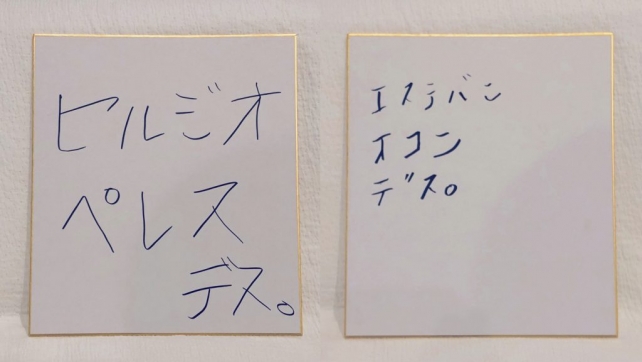 セルジオ
ペレス
デス。
エステバン
オコン
デス。